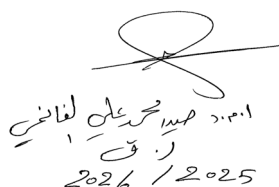 ا.م.د حيدر محمد علي الغانمي
ر. ق
2026 / 2025